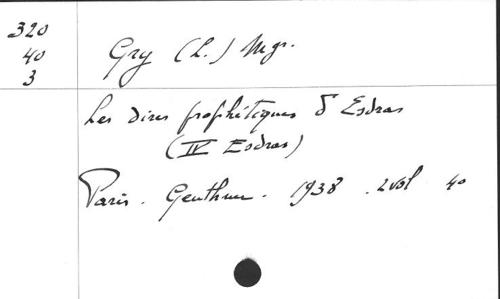 320
40
3
Gry (L.) Mgr.
Les dires prophétiques d'Esdras
(IV Esdras)
Paris. Geuthner. 1938. 2 vol 4°